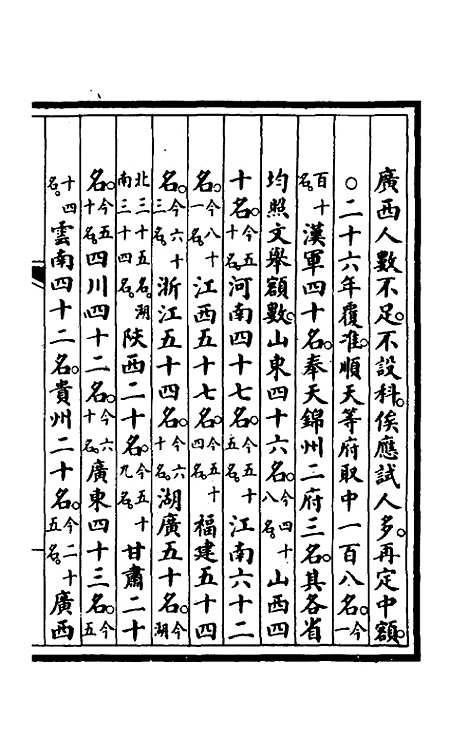 廣西人數不足。不設科。俟應試人多。再定中額。
○二十六年覆准。順天等府取中一百八名。今一
百十名。漢軍四十名。奉天錦州二府三名。其各省
均照文舉額數。山東四十六名。今四十八名。山西四
十名。今五十名。河南四十七名。今五十五名。江南六十二
名。今八十一名。江西五十七名。今五十四名。福建五十四
名。今六十三名。浙江五十四名。今六十名。湖廣五十名。今湖
北三十五名。湖南三十四名。陝西二十名。今五十九名。甘肅二十
名。今五十名。四川四十二名。今六十名。廣東四十三名。今五
十四名。雲南四十二名。貴州二十名。今二十五名。廣西